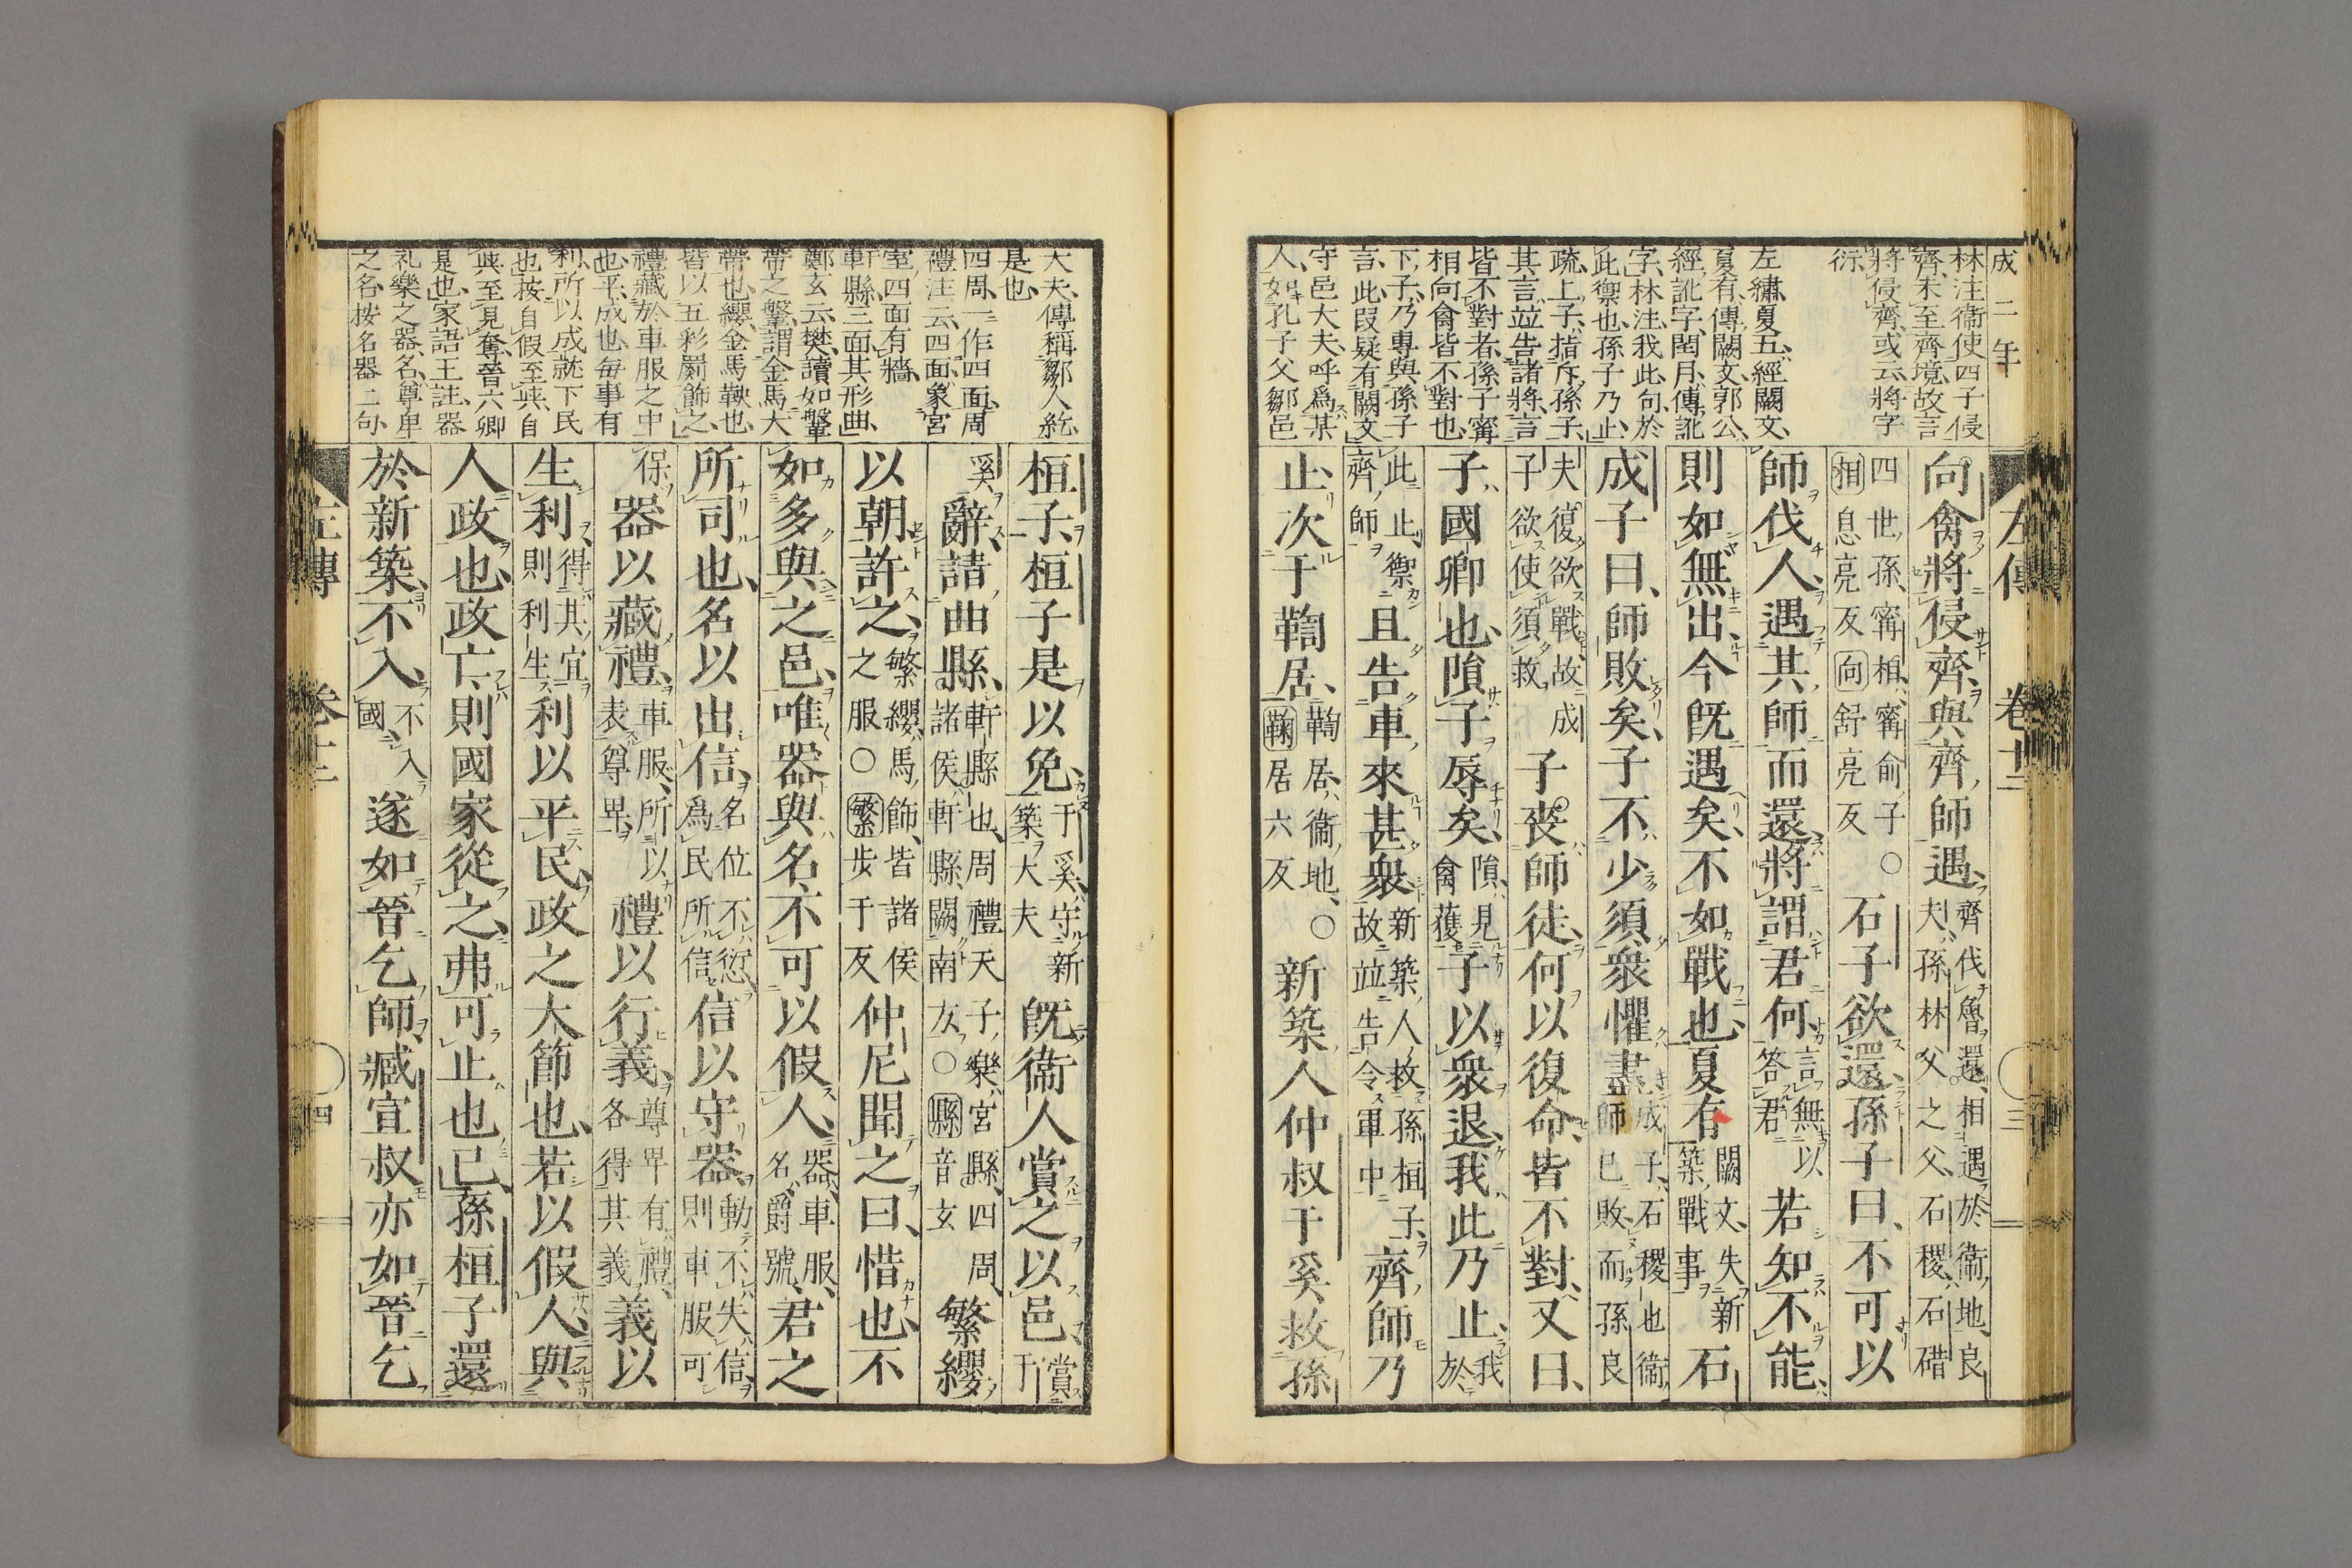 成二年
林注衞使四子侵
齊未至齊境故言
將侵齊或云將字
衍
左繡夏五經闕文
夏有傳闕文郭公
經訛字閏月傳訛
字林注我此句於
此禦也孫子乃止
疏上子指斥孫子
其言竝告諸將言
皆不對者孫子甯
相向禽皆不對也
下子乃專與孫子
言此段疑有闕文
守邑大夫呼爲某
人如孔子父鄹邑
左傳 卷十二 三
向禽將侵齊與齊師遇
齊伐魯還相遇於衞地良
夫孫林父之父石稷石碏
四世孫甯相甯俞子○
相息亮反向舒亮反
石子欲還孫子曰不可以
師伐人遇其師而還將謂君何
言無以
答君
若知不能
則如無出今旣遇矣不如戰也夏有
闕文失新
築戰事
石
成子曰師敗矣子不少須衆懼盡
成子石稷也衞
師已敗而孫良
夫復欲戰故成
子欲使須救
子喪師徒何以復命皆不對又曰
子國卿也隕子辱矣
隕見
禽獲
子以衆退我此乃止
我
於
此止禦
齊師
且告車來甚衆
新築人救孫桓子
故竝告令軍中
齊師乃
止次于鞫居
鞫居衞地○
鞫居六反
新築人仲叔于奚救孫
大夫傳稱鄹人紇
是也
四周一作四面周
禮注云四面象宮
室四面有牆
軒縣三面其形曲
鄭玄云樊讀如鞶
帶之鞶謂金馬大
帶也纓金馬鞅也
皆以五彩罽飾之
禮藏於車服之中
也平成也每事有
利所以成就下民
也按自假至與自
與至見奪晉六卿
是也家語王註器
礼樂之器名尊卑
之名按名器二句
桓子桓子是以免
于奚守新
築大夫
旣衞人賞之以邑
賞
于
奚
辭請曲縣
軒縣也周禮天子樂宮縣四周
諸侯軒縣闕南方○縣音玄
繁纓
以朝許之
繁纓馬飾皆諸侯
之服○繁步于反
仲尼聞之曰惜也不
如多與之邑唯器與名不可以假人
器車服
名爵號
君之
所司也名以出信
名位不愆
爲民所信
信以守器
動不失信
則車服可
保
器以藏禮
車服所以
表尊卑
禮以行義
尊卑有禮
各得其義
義以
生利
得其宜
則利生
利以平民政之大節也若以假人與
人政也政亡則國家從之弗可止也已孫桓子還
於新築不入
不入
國
遂如晉乞師臧宣叔亦如晉乞
左傳 卷十二 四